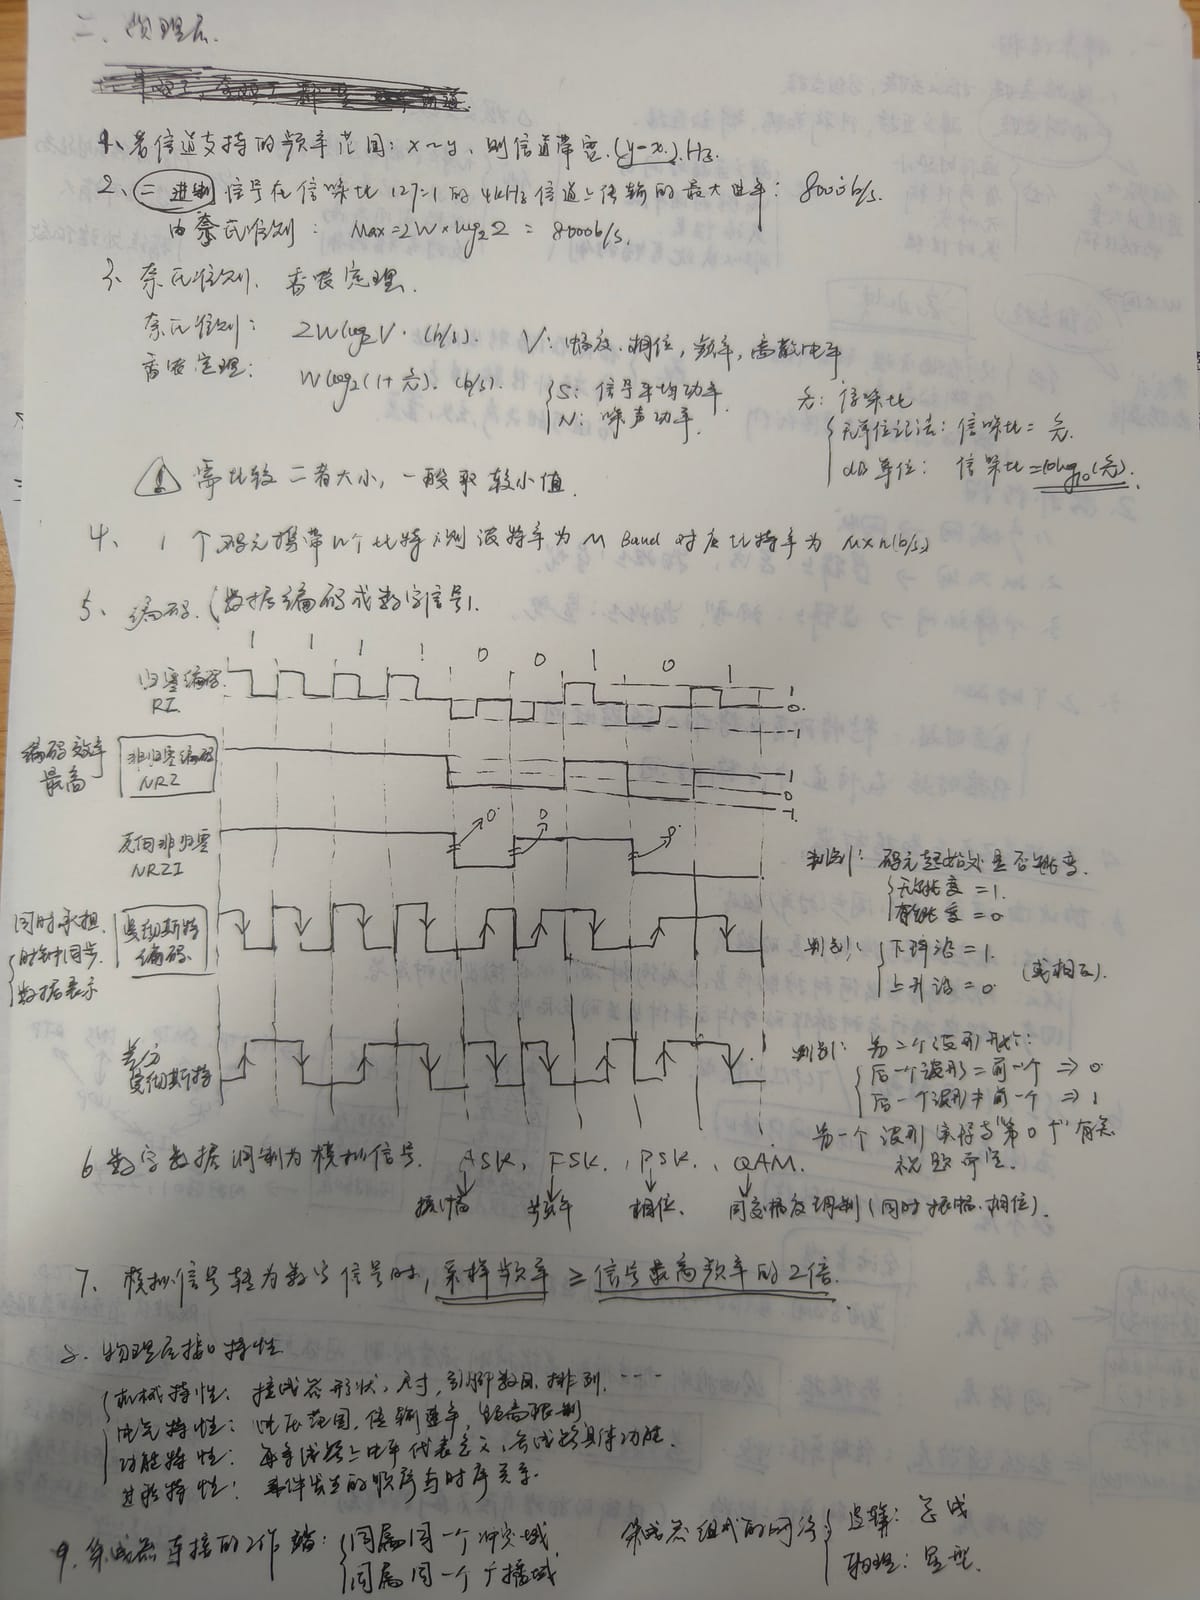 二、物理层.
1、若信道支持的频率范围: x~y, 则信道带宽 (y-x) Hz.
2、二进制 信号在信噪比 127:1 的 4kHz 信道上传输的最大速率: 8000b/s.
由奈氏准则: Max=2W×log₂2 = 8000b/s.
3、奈氏准则、香农定理.
奈氏准则: 2Wlog₂V. (b/s). V: 幅度、相位, 频率, 离散电平
香农定理: Wlog₂(1+S/N). (b/s). S: 信号平均功率 S/N: 信噪比
N: 噪声功率. 无单位记法: 信噪比= S/N.
dB 单位: 信噪比=10log₁₀(S/N).
! 需比较二者大小, 一般取较小值.
4、1个码元携带n个比特, 则波特率为 M Baud 对应比特率为 M×n(b/s)
5、编码. (数据编码成数字信号).
1 1 1 1 0 0 1 0 1
归零编码 RZ. 1 0 -1
编码效率最高 非归零编码 NRZ 1 0 -1
反向非归零 NRZI 0 0 0
判别: 码元起始处是否跳变.
无跳变=1.
有跳变=0
同时承担 时钟同步 数据表示
曼彻斯特编码.
判别: 下降沿=1. (或相反).
上升沿=0.
差分曼彻斯特
判别: 第二个波形开始:
后一个波形=前一个 ⇒ 0
后一个波形≠前一个 ⇒ 1
第一个波形 与"第0个"有关
视题而定.
6 数字数据调制为模拟信号. ASK, FSK, PSK, QAM.
振幅 频率 相位. 正交振幅调制(同时振幅、相位).
7、模拟信号转为数字信号时, 采样频率 ≥ 信号最高频率的2倍.
8. 物理层接口特性
机械特性: 接线器形状, 尺寸, 引脚数目, 排列. ……
电气特性: 电压范围, 传输速率, 距离限制
功能特性: 每条线路上电平代表意义, 各线路具体功能.
过程特性: 事件发生的顺序与时序关系.
9. 集线器连接的工作站: 同属同一个冲突域 集线器组成的网络 逻辑: 总线
同属同一个广播域 物理: 星型.